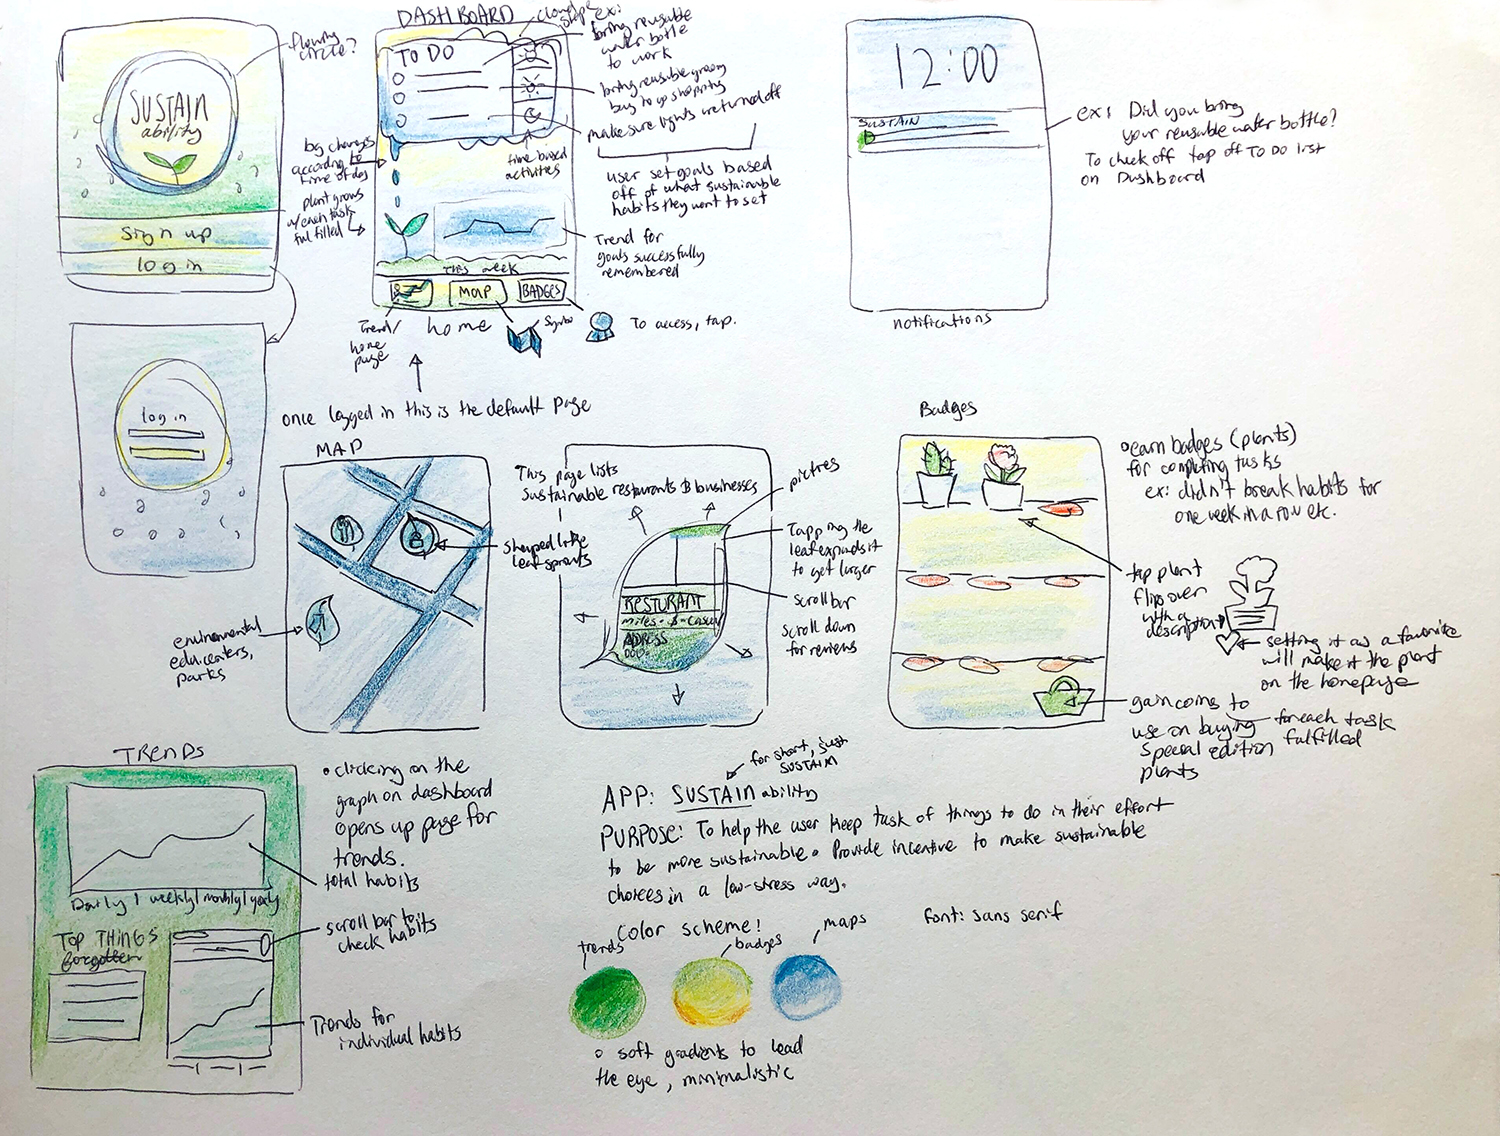 flowing
circle?
SUSTAIN
ability
sign up
log in
log in
DASHBOARD
TO DO
cloud
shape
ex:
bring reusable
water bottle
to work
bring reusable grocery
bag to shopping
make sure lights returned off
time based
activities
user set goals based
off of what sustainable
habits they want to set
bg changes
according to
time of day
plant grows
w/ each task
fulfilled
Trend for
goals successfully
remembered
This week
MAP
BADGES
Trend/
home
page
home
Symbol
To access, tap.
once logged in this is the default page
12:00
SUSTAIN
notifications
ex: Did you bring
your reusable water bottle?
To check off tap off To Do list
on Dashboard
MAP
shaped like
leaf sprouts
environmental
edu centers,
parks
This page lists
sustainable restaurants & businesses
pictres
Tapping the
leaf expands it
to get larger
scroll bar
scroll down
for reviews
RESTURANT
miles - $ - casual
ADDRESS
Badges
earn badges (plants)
for completing tasks
ex: didn't break habits for
one week in a row etc.
tap plant
flips over
with a
description
setting it as a favorite
will make it the plant
on the homepage
gain coins to
use on buying
special edition
plants
for each task
fulfilled
TRENDS
Daily | weekly | monthly | yearly
TOP THINGS
forgotten
• clicking on the
graph on dashboard
opens up page for
trends.
total habits
scroll bar to
check habits
Trends for
individual habits
for short, just
SUSTAIN
APP: SUSTAINability
PURPOSE: To help the user keep task of things to do in their effort
to be more sustainable. Provide incentive to make sustainable
choices in a low-stress way.
Color scheme!
trends
badges
maps
font: sans serif
soft gradients to lead
the eye, minimalistic